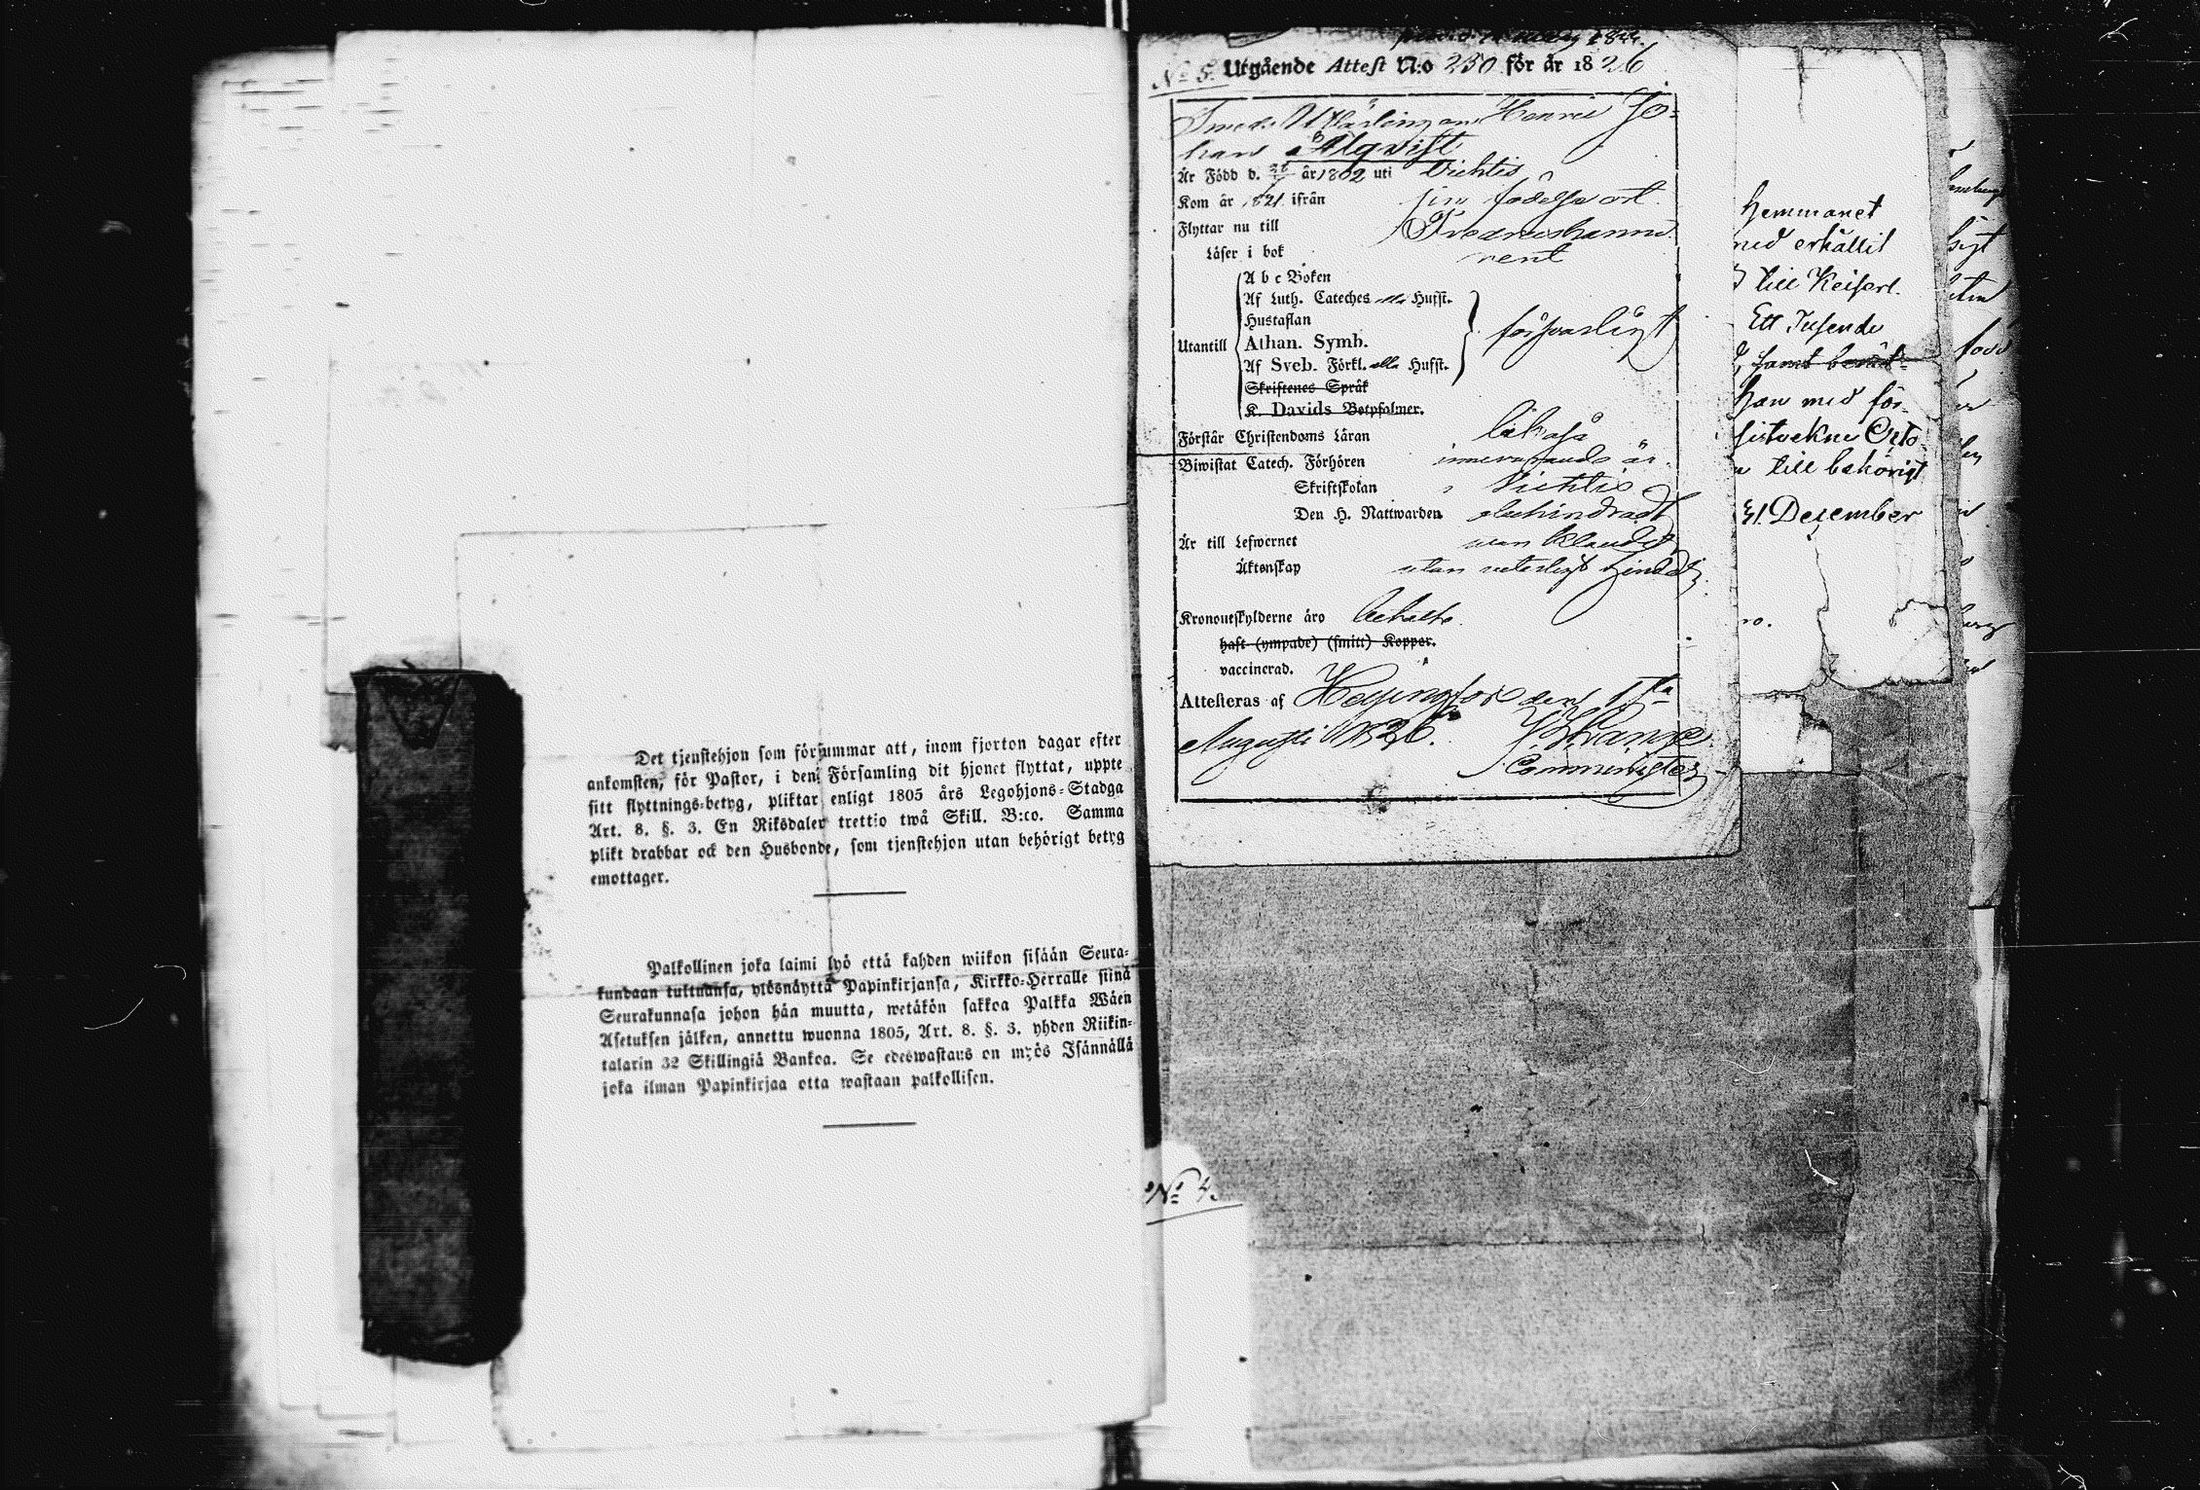 Det tjenstehjon som försummar att, inom fjorton dagar efter
ankomsten, för Pastor, i den Församling dit hjonet flyttat, uppte
sitt flyttnings-betyg, pliktar enligt 1805 års Legohjons-Stadga
Art. 8. §. 3. En Riksdaler trettio twå Skill. B:co. Samma
plikt drabbar ock den Husbonde, som tjenstehjon utan behörigt betyg
emottager.
Palkollinen joka laimi lyö että kahden wiikon sisään Seura-
kundaan tultuansa, ylösnäyttä Papinkirjansa, Kirkko-Herralle siinä
Seurakunnasa johon hän muutta, wetäkön sakkoa Palkka Wäen
Asetuksen jälken, annettu wuonna 1805, Art. 8. §. 3. yhden Riikin-
talarin 32 Skillingiä Bankoa. Se edeswastaus on myös Isännällä
joka ilman Papinkirjaa otta wastaan palkollisen.
No 5. Utgående Attest N:o 250 för år 1826
Smeds Henric Jo-
han Alqvist
Är Född d. år 1802 uti Vichtis
Kom år 1821 ifrån sin födelse ort.
Flyttar nu till Fredricshamn
Läser i bok rent
A b c Boken
Af Luth. Cateches alla Hufst.
Hustaflan
Utantill Athan. Symb. försvarligt
Af Sveb. Förkl. alla Hufst.
Skriftenes Språk
K. Davids Botpsalmer.
Förstår Christendoms Läran likaså
Biwistat Catech. Förhören innevarande år.
Skriftskolan Vichtis
Den H. Nattwarden obehindradt
Är till Lefwernet oklandrad
Äktenskap utan veterligt hinder
Kronoutskylderne äro betalte.
haft (ympade) (smitt) Koppor.
vaccinerad.
Attesteras af Helsingfors den
Augusti 1826.
Comminister
hemmanet
med erhållit
till Keiserl.
Ett Tusende
samt
han med för-
Orts
till behörigt
31 December
No 4.